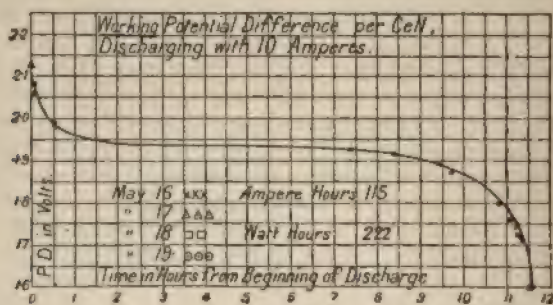 Working Potential Difference per Cell,
Discharging with 10 Amperes.
2·2
2·1
2·0
1·9
1·8
1·7
1·6
P.D. in Volts.
May 16 xxx Ampere Hours 115
" 17 △△△
" 18 □□ Watt Hours 222
" 19 ⊙⊙⊙
Time in Hours from Beginning of Discharge
0 1 2 3 4 5 6 7 8 9 10 11 12